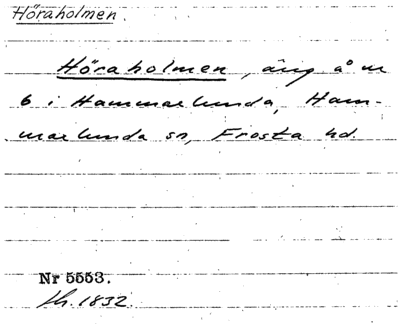 Höraholmen
Höraholmen, äng å nr
6 i Hammarlunda, Ham-
marlunda sn, Frosta hd.
Nr 5553.
1832.